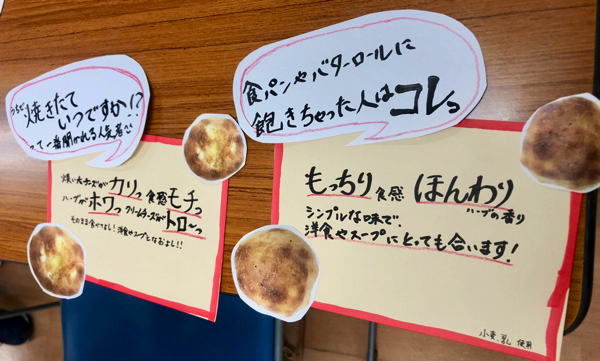 うちで
焼きたて
いつですか!?
って一番聞かれる人気者♡
焼いたチーズがカリっ食感モチっ
ハーブがホワっクリームチーズがトロ〜っ
そのまま食べてよし!洋食やスープとなおよし!!
食パンやバターロールに
飽きちゃった人はコレっ
もっちり食感 ほんわり
ハーブの香り
シンプルな味で、
洋食やスープにとっても合います!
小麦、乳 使用